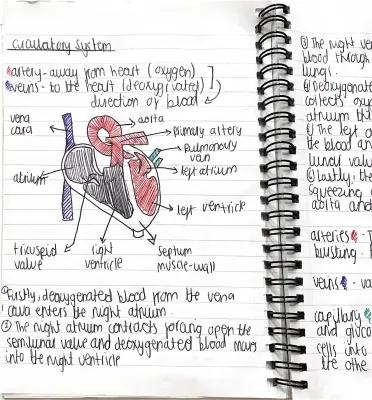 circulatory system
artery - away from heart (oxygen)
veins - to the heart (deoxyginated)
direction of blood
vena cava
aorta
plmoary artery
pulmonary vein
left atrium
atrium
left ventricle
tricuspid valve
right ventricle
septum muscle-wall
① Firstly, deoxygenated blood from the vena
cava enters the right atrium.
② The right atrium contracts forcing open the
semilunar valve and deoxygenated blood moves
into the right ventricle
③ The right
blood through
lungs.
④ Deoxygenate
collects oxy
atrium th
The left
the blood an
lunar valve
Lastly, the
squeezing
aorta and
arteries - T
bursting.
veins - va
capillary
and gluco
cells into
the othe